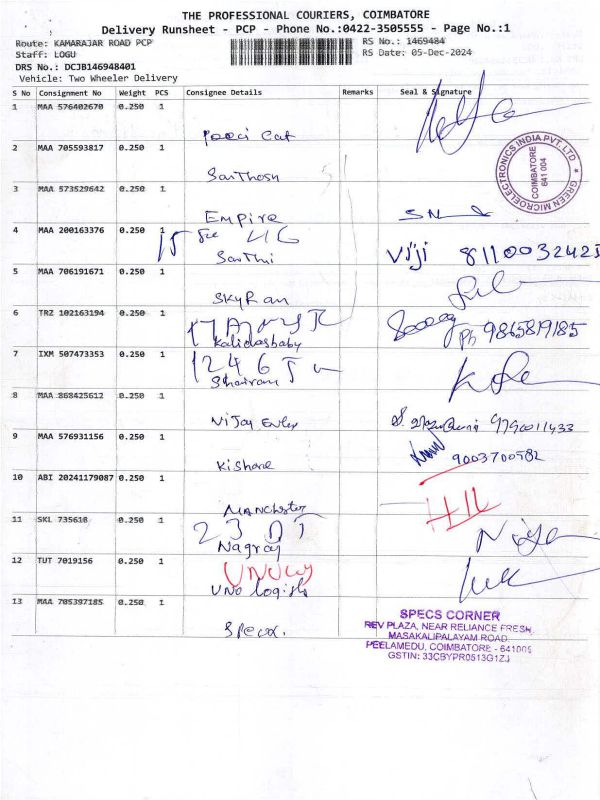 THE PROFESSIONAL COURIERS, COIMBATORE
Delivery Runsheet - PCP - Phone No.:0422-3505555 - Page No.:1
Route: KAMARAJAR ROAD PCP
RS No.: 1469484
Staff: LOGU
RS Date: 05-Dec-2024
DRS No.: DCJB146948401
Vehicle: Two Wheeler Delivery
S No Consignment No Weight PCS Consignee Details Remarks Seal & Signature
1 MAA 576402670 0.250 1
2 MAA 705593817 0.250 1
Santhosh
GREEN MICROELECTRONICS INDIA PVT. LTD
COIMBATORE
641 004
3 MAA 573529642 0.250 1
EMPIRE
4 MAA 200163376 0.250 1
Santhi
Viji 8110032425
5 MAA 706191671 0.250 1
SkyRan
6 TRZ 102163194 0.250 1
Kalidasbaby
Ph 9865819185
7 IXM 507473353 0.250 1
1246
Shairam
8 MAA 868425612 0.250 1
Vijay
9790011433
9 MAA 576931156 0.250 1
Kishore
9003700582
10 ABI 20241179087 0.250 1
Manchester
11 SKL 735618 0.250 1
Nagraj
12 TUT 7019156 0.250 1
UNO logish
13 MAA 705397185 0.250 1
SPECS CORNER
REV PLAZA, NEAR RELIANCE FRESH,
MASAKALIPALAYAM ROAD
PEELAMEDU, COIMBATORE - 641005
GSTIN: 33CBYPR0513G1ZJ